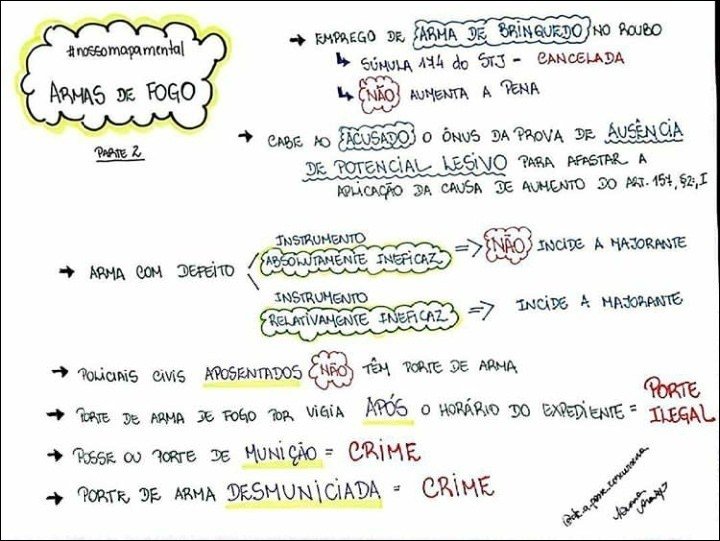 #nossomapamental
ARMAS DE FOGO
PARTE 2
→ EMPREGO DE ARMA DE BRINQUEDO NO ROUBO
↳ SÚMULA 174 do STJ - CANCELADA
↳ NÃO AUMENTA A PENA
→ CABE AO ACUSADO O ÔNUS DA PROVA DE AUSÊNCIA
DE POTENCIAL LESIVO PARA AFASTAR A
APLICAÇÃO DA CAUSA DE AUMENTO DO ART. 157, §2º, I
→ ARMA COM DEFEITO
INSTRUMENTO
ABSOLUTAMENTE INEFICAZ => NÃO INCIDE A MAJORANTE
INSTRUMENTO
RELATIVAMENTE INEFICAZ => INCIDE A MAJORANTE
→ POLICIAIS CIVIS APOSENTADOS NÃO TÊM PORTE DE ARMA
→ PORTE DE ARMA DE FOGO POR VIGIA APÓS O HORÁRIO DO EXPEDIENTE = PORTE
ILEGAL
→ POSSE OU PORTE DE MUNIÇÃO = CRIME
→ PORTE DE ARMA DESMUNICIADA = CRIME